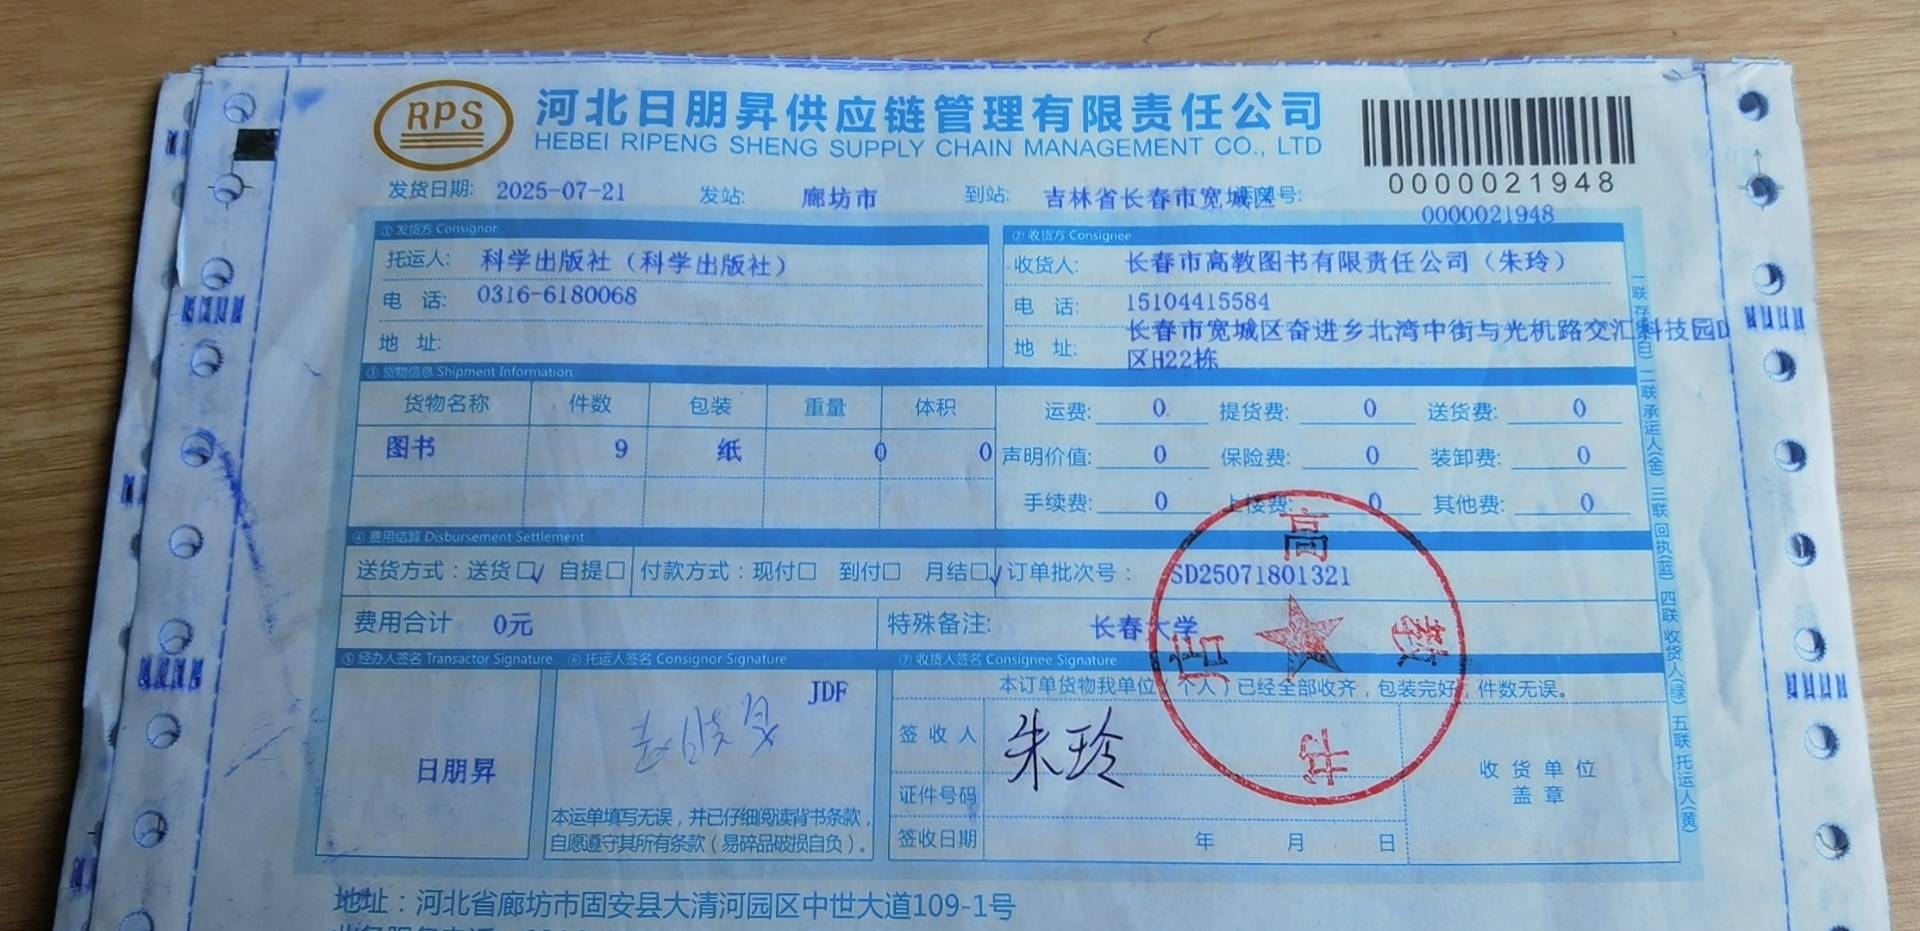 RPS
河北日朋昇供应链管理有限责任公司
HEBEI RIPENG SHENG SUPPLY CHAIN MANAGEMENT CO., LTD
0000021948
发货日期: 2025-07-21 发站: 廊坊市 到站: 吉林省长春市宽城区 号:
0000021948
① 发货方 Consignor
托运人: 科学出版社（科学出版社）
电 话: 0316-6180068
地 址:
② 收货方 Consignee
收货人: 长春市高教图书有限责任公司（朱玲）
电 话: 15104415584
地 址: 长春市宽城区奋进乡北湾中街与光机路交汇科技园D
区H22栋
③ 货物信息 Shipment Information
货物名称 件数 包装 重量 体积
图书 9 纸 0 0
运费: 0 提货费: 0 送货费: 0
声明价值: 0 保险费: 0 装卸费: 0
手续费: 0 上楼费: 0 其他费: 0
④ 费用结算 Disbursement Settlement
送货方式：送货□√ 自提□ 付款方式：现付□ 到付□ 月结□√ 订单批次号： SD25071801321
费用合计 0元 特殊备注: 长春大学
⑤ 经办人签名 Transactor Signature ⑥ 托运人签名 Consignor Signature ⑦ 收货人签名 Consignee Signature
日朋昇
JDF
本运单填写无误，并已仔细阅读背书条款，
自愿遵守其所有条款（易碎品破损自负）。
本订单货物我单位（个人）已经全部收齐，包装完好，件数无误。
签 收 人 朱玲
证件号码
签收日期 年 月 日
收 货 单 位
盖 章
高
教
书
店
二联 承运人(金) 三联 回执(蓝) 四联 收货人(绿) 五联 托运人(黄)
地址：河北省廊坊市固安县大清河园区中世大道109-1号